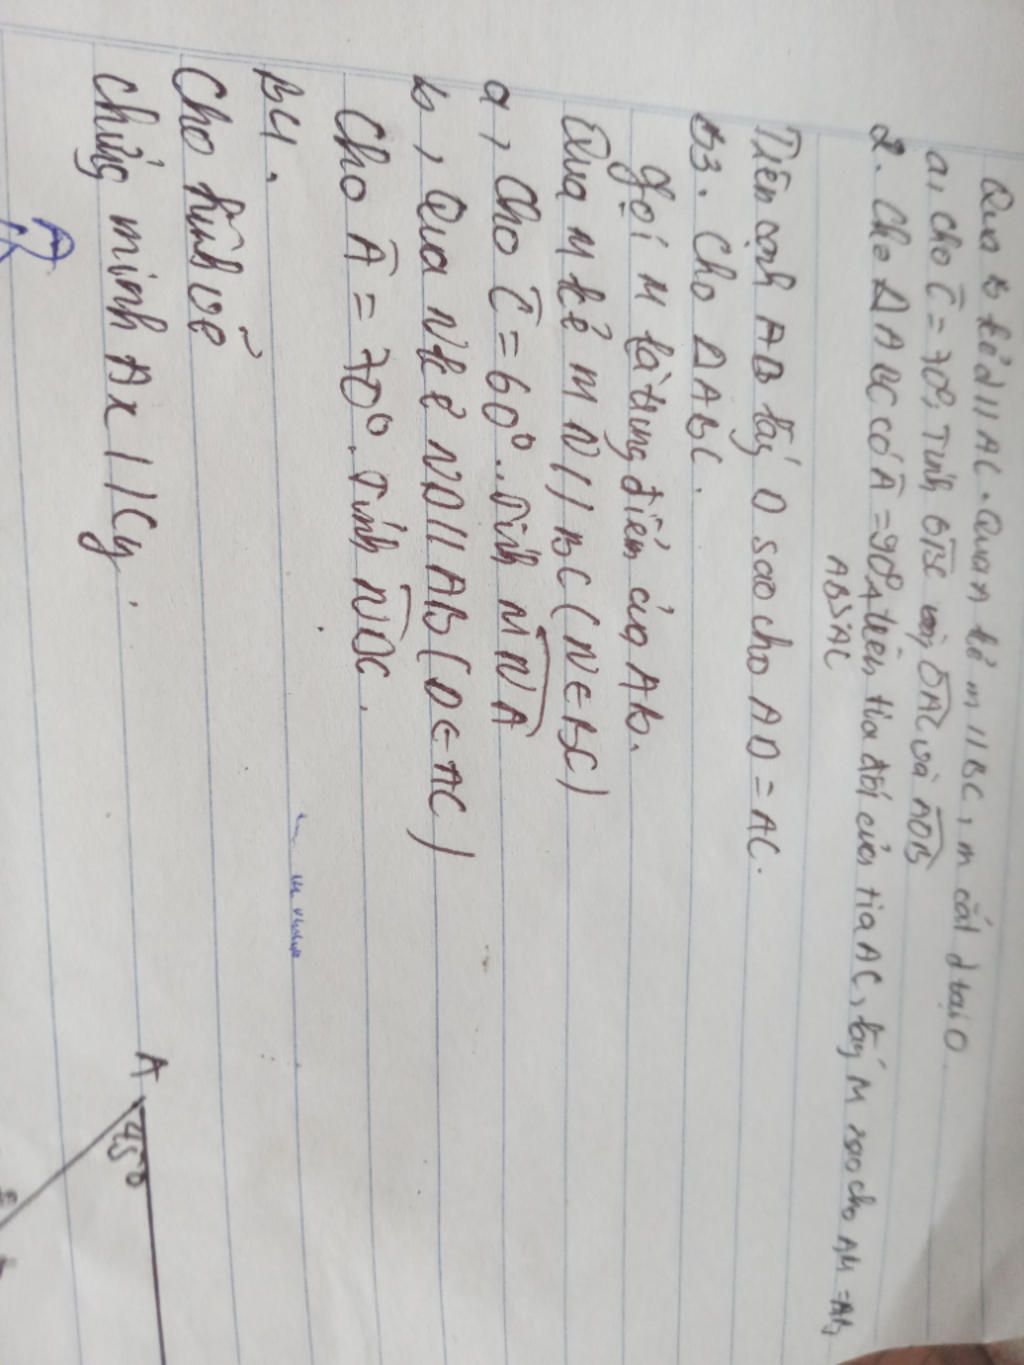 Qua B kẻ d // AC. Qua A kẻ m // BC, m cắt d tại D.
a, Cho Ĉ = 70°, Tính DBC DAC và ADB
2. Cho Δ ABC có Â = 90°, trên tia đối của tia AC, lấy M sao cho AM = AB
AB > AC
Trên cạnh AB lấy D sao cho AD = AC.
B3. Cho ΔABC.
Gọi M là trung điểm của AB.
Qua M kẻ MN // BC (N ∈ BC)
a, Cho Ĉ = 60°. Tính MNA
b, Qua N kẻ ND // AB (D ∈ AC)
Cho Â = 70°. Tính NDC.
B4.
Cho hình vẽ
Chứng minh Ax // Cy.
A
45°